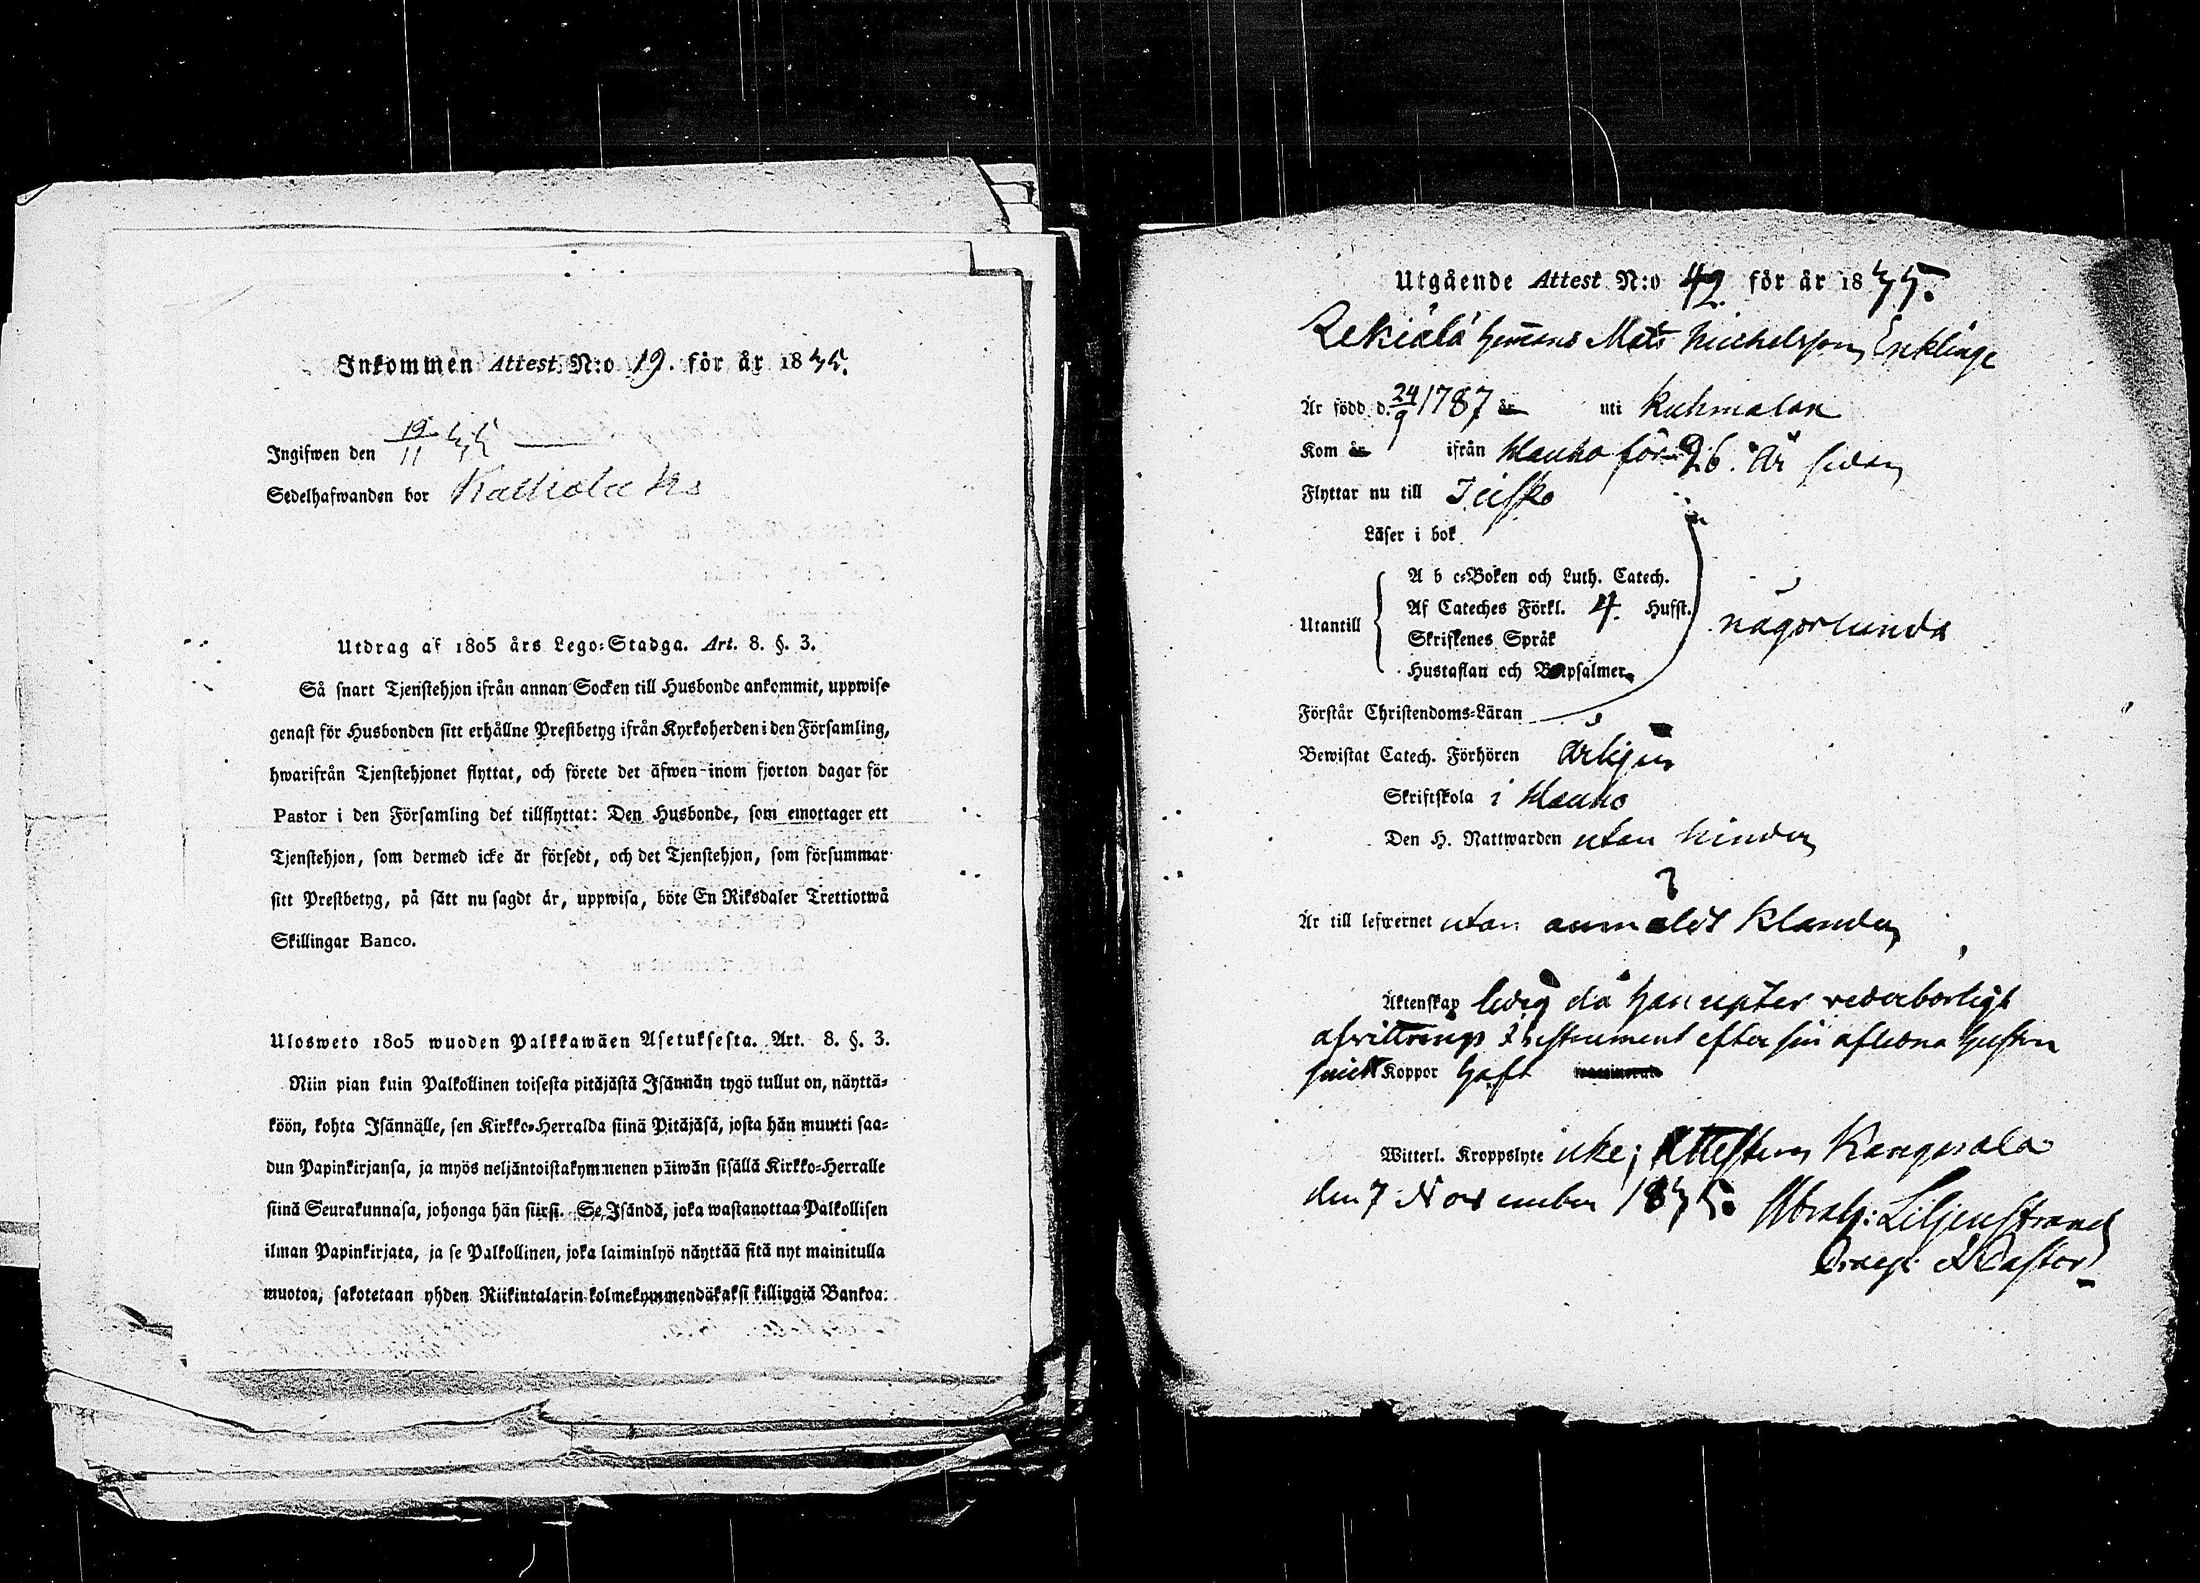 Inkommen Attest N:o 19. för år 1835.
Ingifwen den 19/11 35
Sedelhafwanden bor
Utdrag af 1805 års Lego-Stadga. Art. 8. §. 3.
Så snart Tjenstehjon ifrån annan Socken till Husbonde ankommit, uppwise
genast för Husbonden sitt erhållne Prestbetyg ifrån Kyrkoherden i den Församling,
hwarifrån Tjenstehjonet flyttat, och förete det äfwen inom fjorton dagar för
Pastor i den Församling det tillflyttat: Den Husbonde, som emottager ett
Tjenstehjon, som dermed icke är försedt, och det Tjenstehjon, som försummar
sitt Prestbetyg, på sätt nu sagdt är, uppwisa, böte En Riksdaler Trettiotwå
Skillingar Banco.
Ulosweto 1805 wuoden Palkkawäen Asetuksesta. Art. 8. §. 3.
Niin pian kuin Palkollinen toisesta pitäjästä Isännän tygö tullut on, näyttä-
köön, kohta Isännälle, sen Kirkko-Herralda siinä Pitäjäsä, josta hän muutti saa-
dun Papinkirjansa, ja myös neljäntoistakymmenen päiwän sisällä Kirkko-Herralle
siinä Seurakunnasa, johonga hän siirsi. Se Isändä, joka wastanottaa Palkollisen
ilman Papinkirjata, ja se Palkollinen, joka laiminlyö näyttää sitä nyt mainitulla
muotoa, sakotetaan yhden Riikintalarin kolmekymmendäkaksi killingiä Bankoa.
Utgående Attest N:o 42 för år 1835.
Mats Michelsson Enkling
Är född d. 24/9 1787 år uti Kuhmalan
Kom år ifrån Hauho för 26 År sedan
Flyttar nu till
Läser i bok
A b c-Boken och Luth. Catech.
Af Cateches Förkl. 4. Hufst.
Utantill någorlunda
Skriftenes Språk
Hustaflan och Botpsalmer
Förstår Christendoms-Läran
Bewistat Catech. Förhören årligen
Skriftskola i Hauho
Den H. Nattwarden utan hinder
Är till lefwernet utan anmäldt klander
Äktenskap ledig då han upter vederbörligt
afvittrings Instrument efter sin aflidna hustru
Koppor haft
Witterl. Kroppslyte icke; Attesterar Kangasala
den 7 November 1835. Abrah: Liljenstrand
Pastor